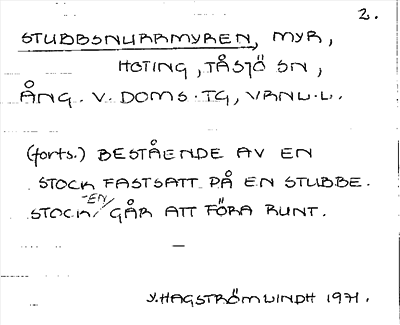 2.
STUBBSNURRMYREN, MYR,
HOTING, TÅSJÖ SN,
ÅNG. V. DOMS. TG, VRNL.L.
(forts.) BESTÅENDE AV EN
STOCK FASTSATT PÅ EN STUBBE.
STOCK-EN/ GÅR ATT FÖRA RUNT.
—
Y. HAGSTRÖM LINDH 1971.